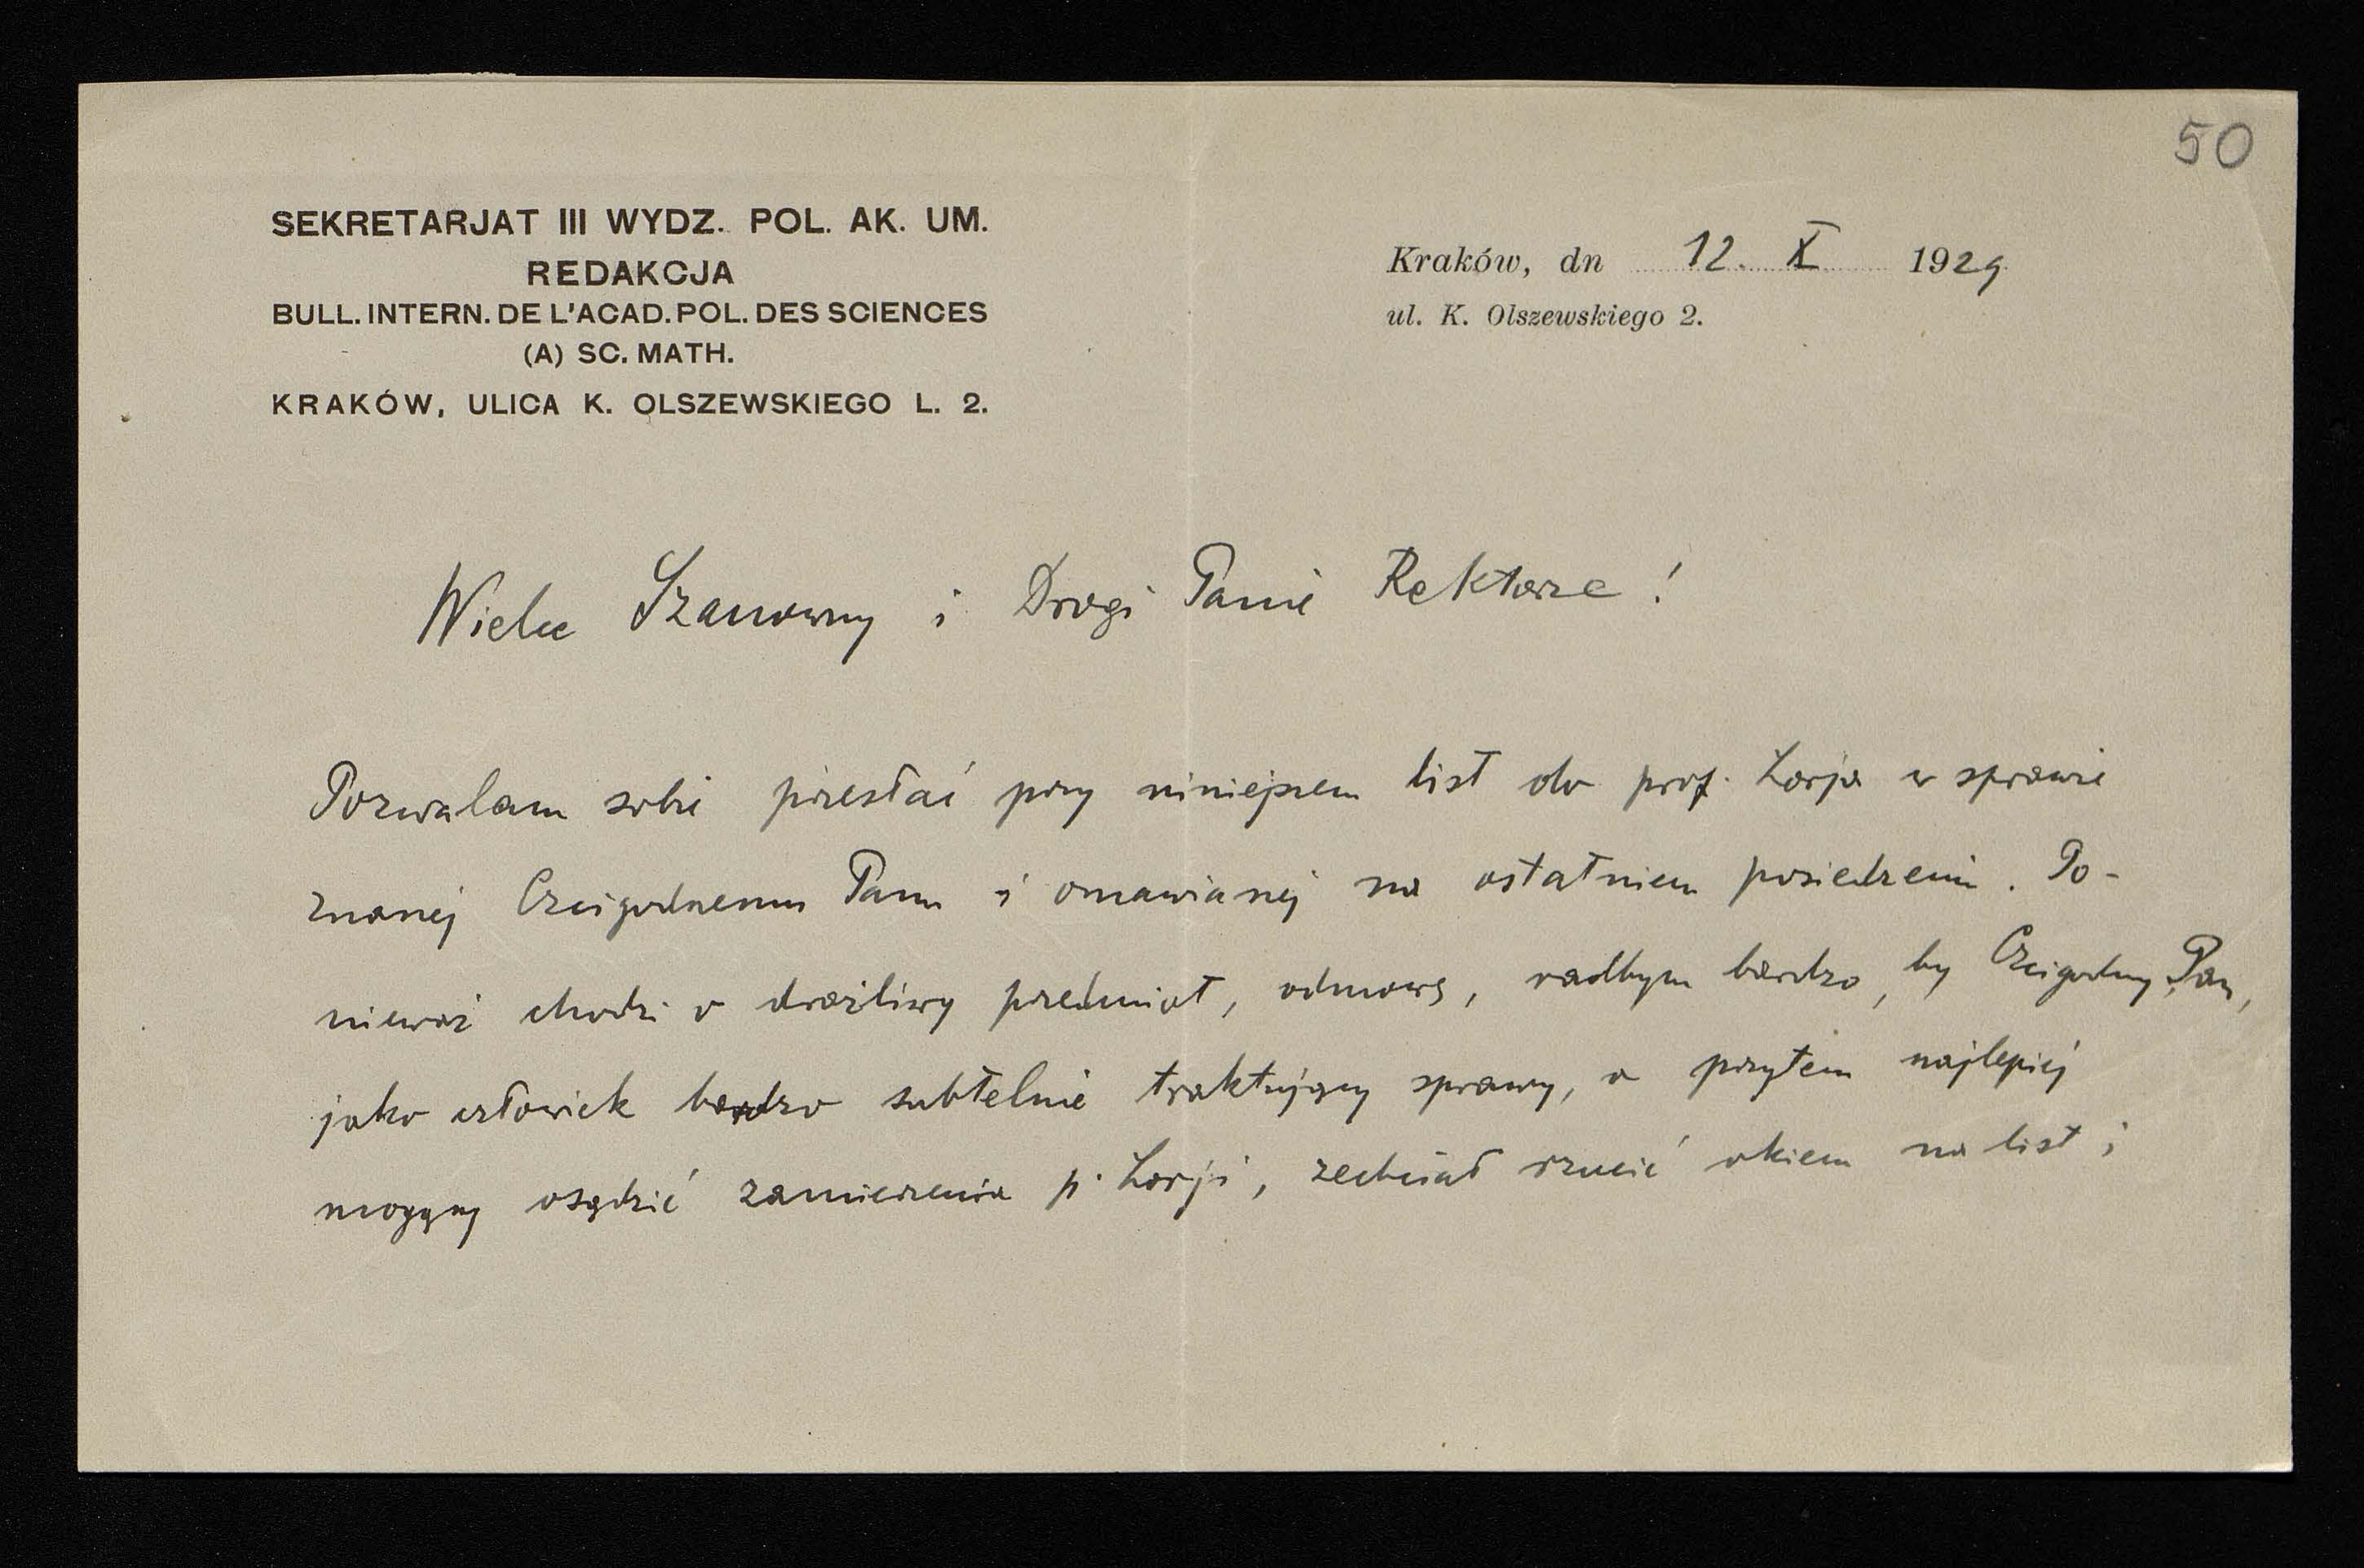 50
SEKRETARJAT III WYDZ. POL. AK. UM.
REDAKCJA
BULL. INTERN. DE L'ACAD. POL. DES SCIENCES
(A) SC. MATH.
KRAKÓW, ULICA K. OLSZEWSKIEGO L. 2.
Kraków, dn 12. X 1929
ul. K. Olszewskiego 2.
Wielce Szanowny i Drogi Panie Rektorze!
Pozwalam sobie przesłać przy niniejszem list do prof. Lorja w sprawie
znanej Czcigodnemu Panu i omawianej na ostatniem posiedzeniu. Po-
nieważ chodzi o drażliwy przedmiot, odmowę, radbym bardzo, by Czcigodny Pan,
jako człowiek bardzo subtelnie traktujący sprawy, a przytem najlepiej
mogący osądzić zamierzenia p. Lorji, zechciał rzucić okiem na list i